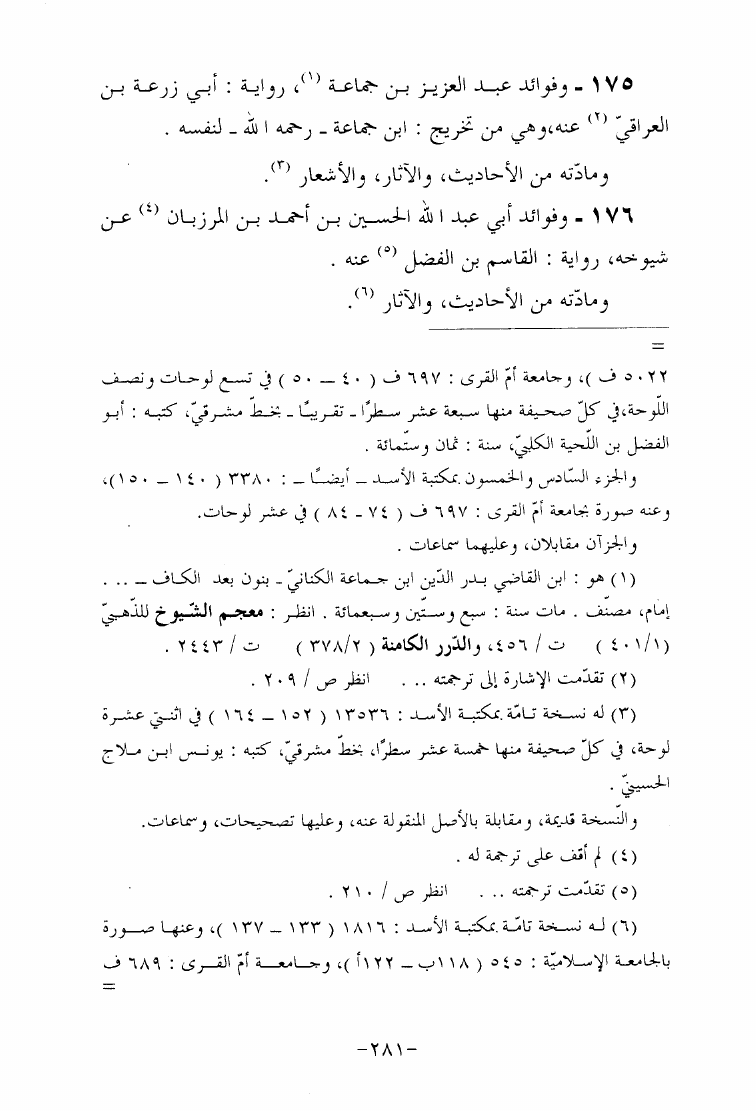 ١٧٥ - وفوائد عبد العزيز بن جماعة (١)، رواية : أبي زرعة بن
العراقيّ (٢) عنه،وهي من تخريج : ابن جماعة - رحمه ا لله - لنفسه .
ومادّته من الأحاديث، والآثار، والأشعار (٣).
١٧٦ - وفوائد أبي عبد ا لله الحسين بن أحمد بن المرزبان (٤) عن
شيوخه، رواية : القاسم بن الفضل (٥) عنه .
ومادّته من الأحاديث، والآثار (٦).
=
٥٠٢٢ ف )، وجامعة أمّ القرى : ٦٩٧ ف ( ٤٠ – ٥٠ ) في تسع لوحات ونصف
اللّوحة،في كلّ صحيفة منها سبعة عشر سطرًا - تقريبًا - بخطّ مشرقيّ، كتبه : أبو
الفضل بن اللّحية الكلبيّ، سنة : ثمان وستّمائة .
والجزء السّادس والخمسون بمكتبة الأسد – أيضًا – : ٣٣٨٠ ( ١٤٠ – ١٥٠)،
وعنه صورة بجامعة أمّ القرى : ٦٩٧ ف ( ٧٤ - ٨٤ ) في عشر لوحات.
والجزآن مقابلان، وعليهما سماعات .
(١) هو : ابن القاضي بدر الدّين ابن جماعة الكنانيّ - بنون بعد الكاف – ... .
إمام، مصنّف . مات سنة : سبع وستّين وسبعمائة . انظر : معجم الشّيوخ للذّهبيّ
(٤٠١/١) ت / ٤٥٦، والدّرر الكامنة ( ٣٧٨/٢ ) ت / ٢٤٤٣ .
(٢) تقدّمت الإشارة إلى ترجمته ... . انظر ص / ٢٠٩ .
(٣) له نسخة تامّة بمكتبة الأسد : ١٣٥٣٦ ( ١٥٢ – ١٦٤ ) في اثنتي عشرة
لوحة، في كلّ صحيفة منها خمسة عشر سطرًا، بخطّ مشرقيّ، كتبه : يونس ابن ملاج
الحسينيّ .
والنّسخة قديمة، ومقابلة بالأصل المنقولة عنه، وعليها تصحيحات، وسماعات.
(٤) لم أقف على ترجمة له .
(٥) تقدّمت ترجمته ... . انظر ص / ٢١٠ .
(٦) له نسخة تامّة بمكتبة الأسد : ١٨١٦ ( ١٣٣ – ١٣٧ )، وعنها صورة
بالجامعة الإسلاميّة : ٥٤٥ ( ١١٨ب – ١٢٢أ )، وجامعة أمّ القرى : ٦٨٩ ف
=
-٢٨١-